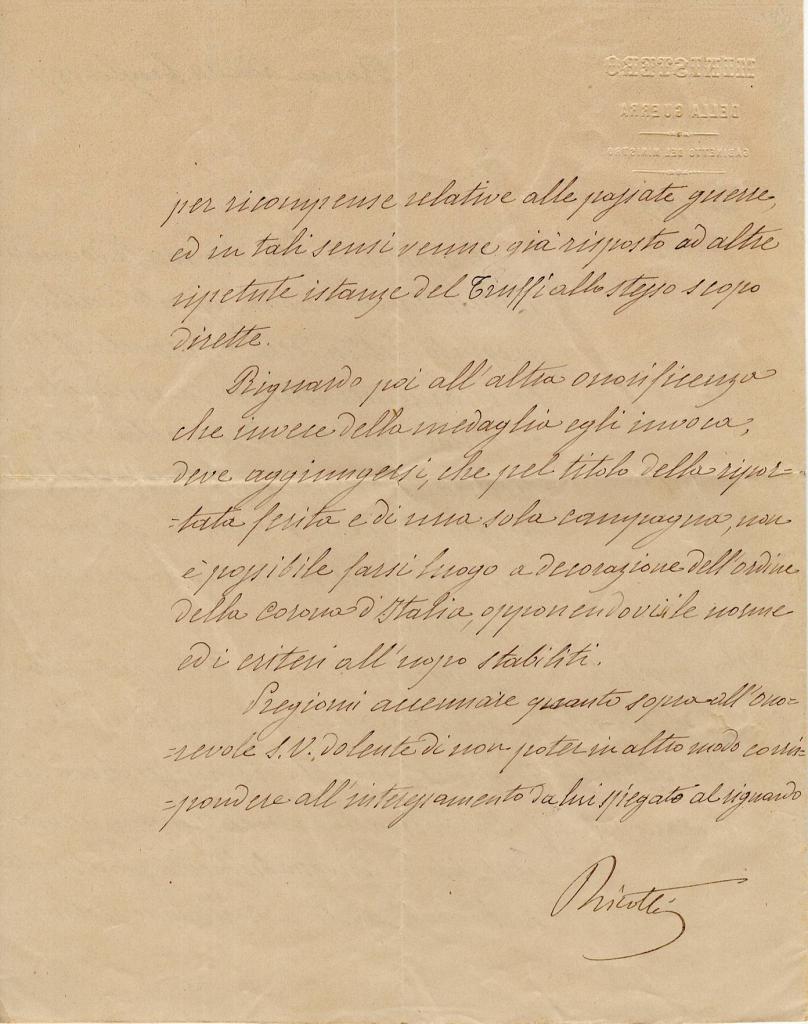 MINISTERO
DELLA GUERRA
GABINETTO DEL MINISTRO
per ricompense relative alle passate guerre,
ed in tali sensi venne già risposto ad altre
ripetute istanze del Truffi allo stesso scopo
dirette.
Riguardo poi all'altra onorificenza
che invece della medaglia egli invoca,
deve aggiungersi, che pel titolo della ripor=
=tata ferita e di una sola campagna, non
è possibile farsi luogo a decorazione dell'ordine
della corona d'Italia, opponendovisi le norme
ed i criteri all'uopo stabiliti.
Pregiomi accennare quanto sopra all'Ono=
=revole S.V. dolente di non poter in altro modo corris=
=pondere all'interessamento da lui spiegato al riguardo
Ricotti